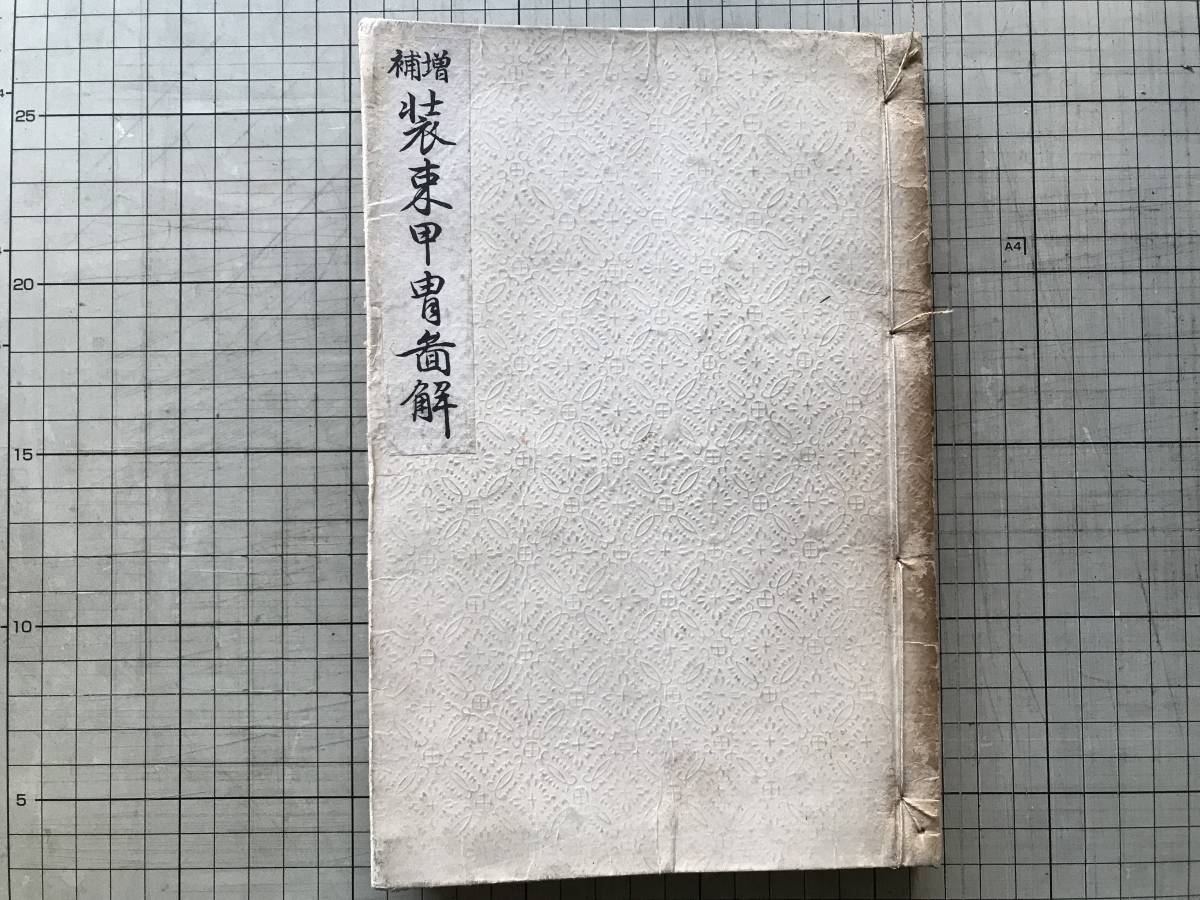 増補
装束甲冑図解
25
20
15
10
5
A4